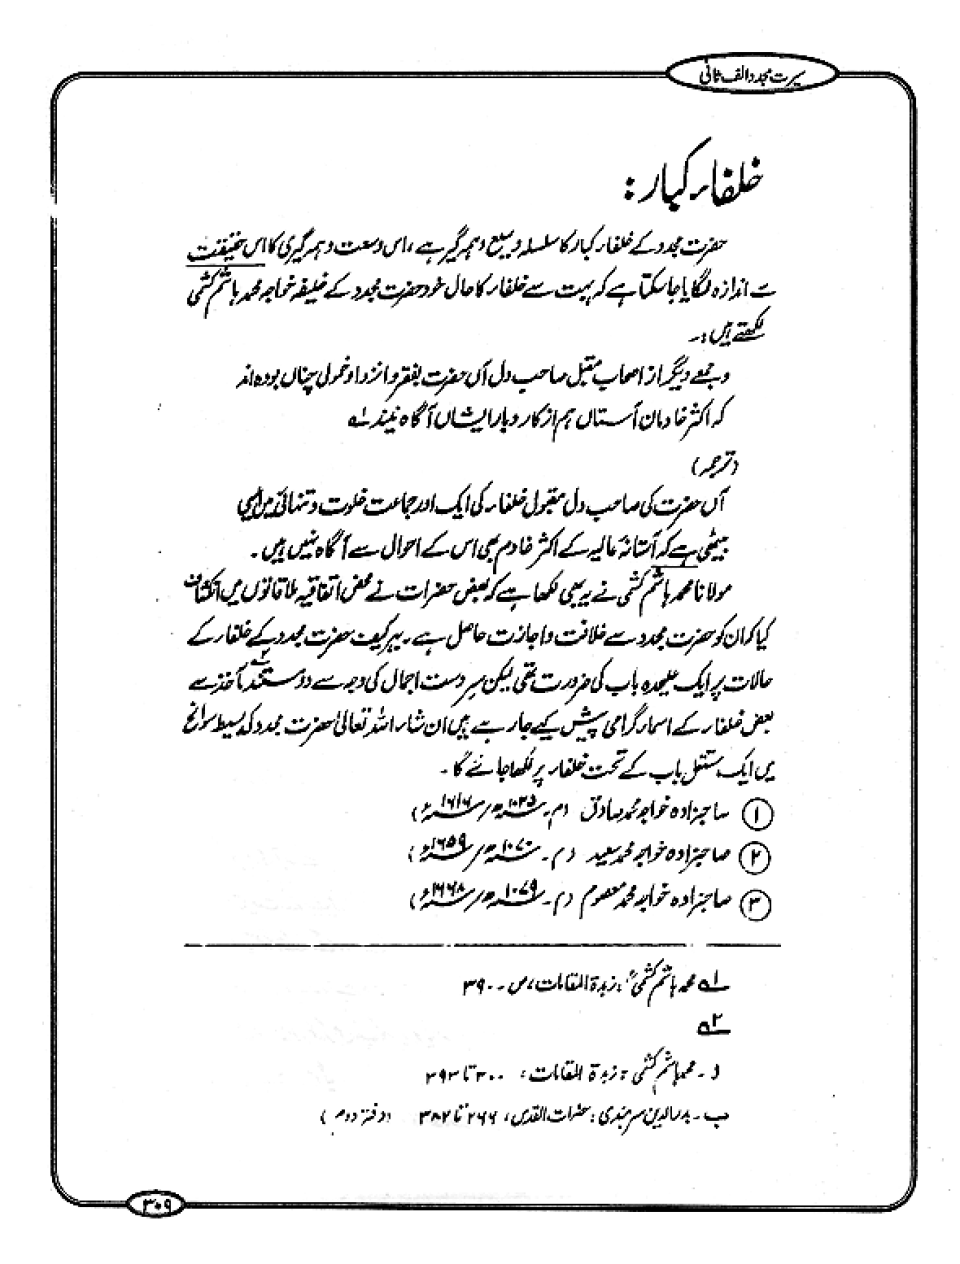 سیرت مجدد الف ثانی
خلفاء کبار :
حضرت مجدد کے خلفاء کبار کا سلسلہ وسیع و ہمہ گیر ہے ، اس وسعت و ہمہ گیری کا اس حقیقت
سے اندازہ لگایا جاسکتا ہے کہ بہت سے خلفاء کا حال خود حضرت مجدد کے خلیفہ خواجہ محمد ہاشم کشمی
لکھتے ہیں :۔
و جمعے دیگر از اصحاب مقبل صاحب دل آں حضرت بفقر و انزوا و خمولی چناں بودہ اند
کہ اکثر خادمان آستاں ہم از کاروبار ایشاں آگاہ نیند ؎۱
(ترجمہ)
آں حضرت کی صاحب دل مقبول خلفاء کی ایک اور جماعت خلوت و تنہائی میں ایسی
بیٹھی ہے کہ آستانۂ عالیہ کے اکثر خادم بھی اس کے احوال سے آگاہ نہیں ہیں ۔
مولانا محمد ہاشم کشمی نے یہ بھی لکھا ہے کہ بعض حضرات نے محض اتفاقیہ ملاقاتوں میں انکشاف
کیا کہ ان کو حضرت مجدد سے خلافت و اجازت حاصل ہے ۔ بہر کیف حضرت مجدد کے خلفاء کے
حالات پر ایک علیحدہ باب کی ضرورت تھی لیکن سردست اجمال کی وجہ سے دو مستند ؎۲ مآخذ سے
بعض خلفاء کے اسماء گرامی پیش کیے جا رہے ہیں ان شاء اللہ تعالیٰ حضرت مجدد کی بسیط سوانح
میں ایک مستقل باب کے تحت خلفاء پر لکھا جائے گا ۔
۱ صاجزادہ خواجہ محمد صادق (م۔ ۱۰۲۵ھ/۱۶۱۶ء)
۲ صاجزادہ خواجہ محمد سعید (م۔ ۱۰۷۰ھ/۱۶۵۹ء)
۳ صاجزادہ خواجہ محمد معصوم (م۔ ۱۰۷۹ھ/۱۶۶۸ء)
؎۱ محمد ہاشم کشمیؒ : زبدۃ المقامات ، ص ۔ ۳۹۰
؎۲
ا ۔ محمد ہاشم کشمی : زبدۃ المقامات ، ۳۰۰ تا ۳۹۲
ب ۔ بدر الدین سرہندی : حضرات القدس ، ۲۶۶ تا ۳۸۲ (دفتر دوم)
۳۰۹